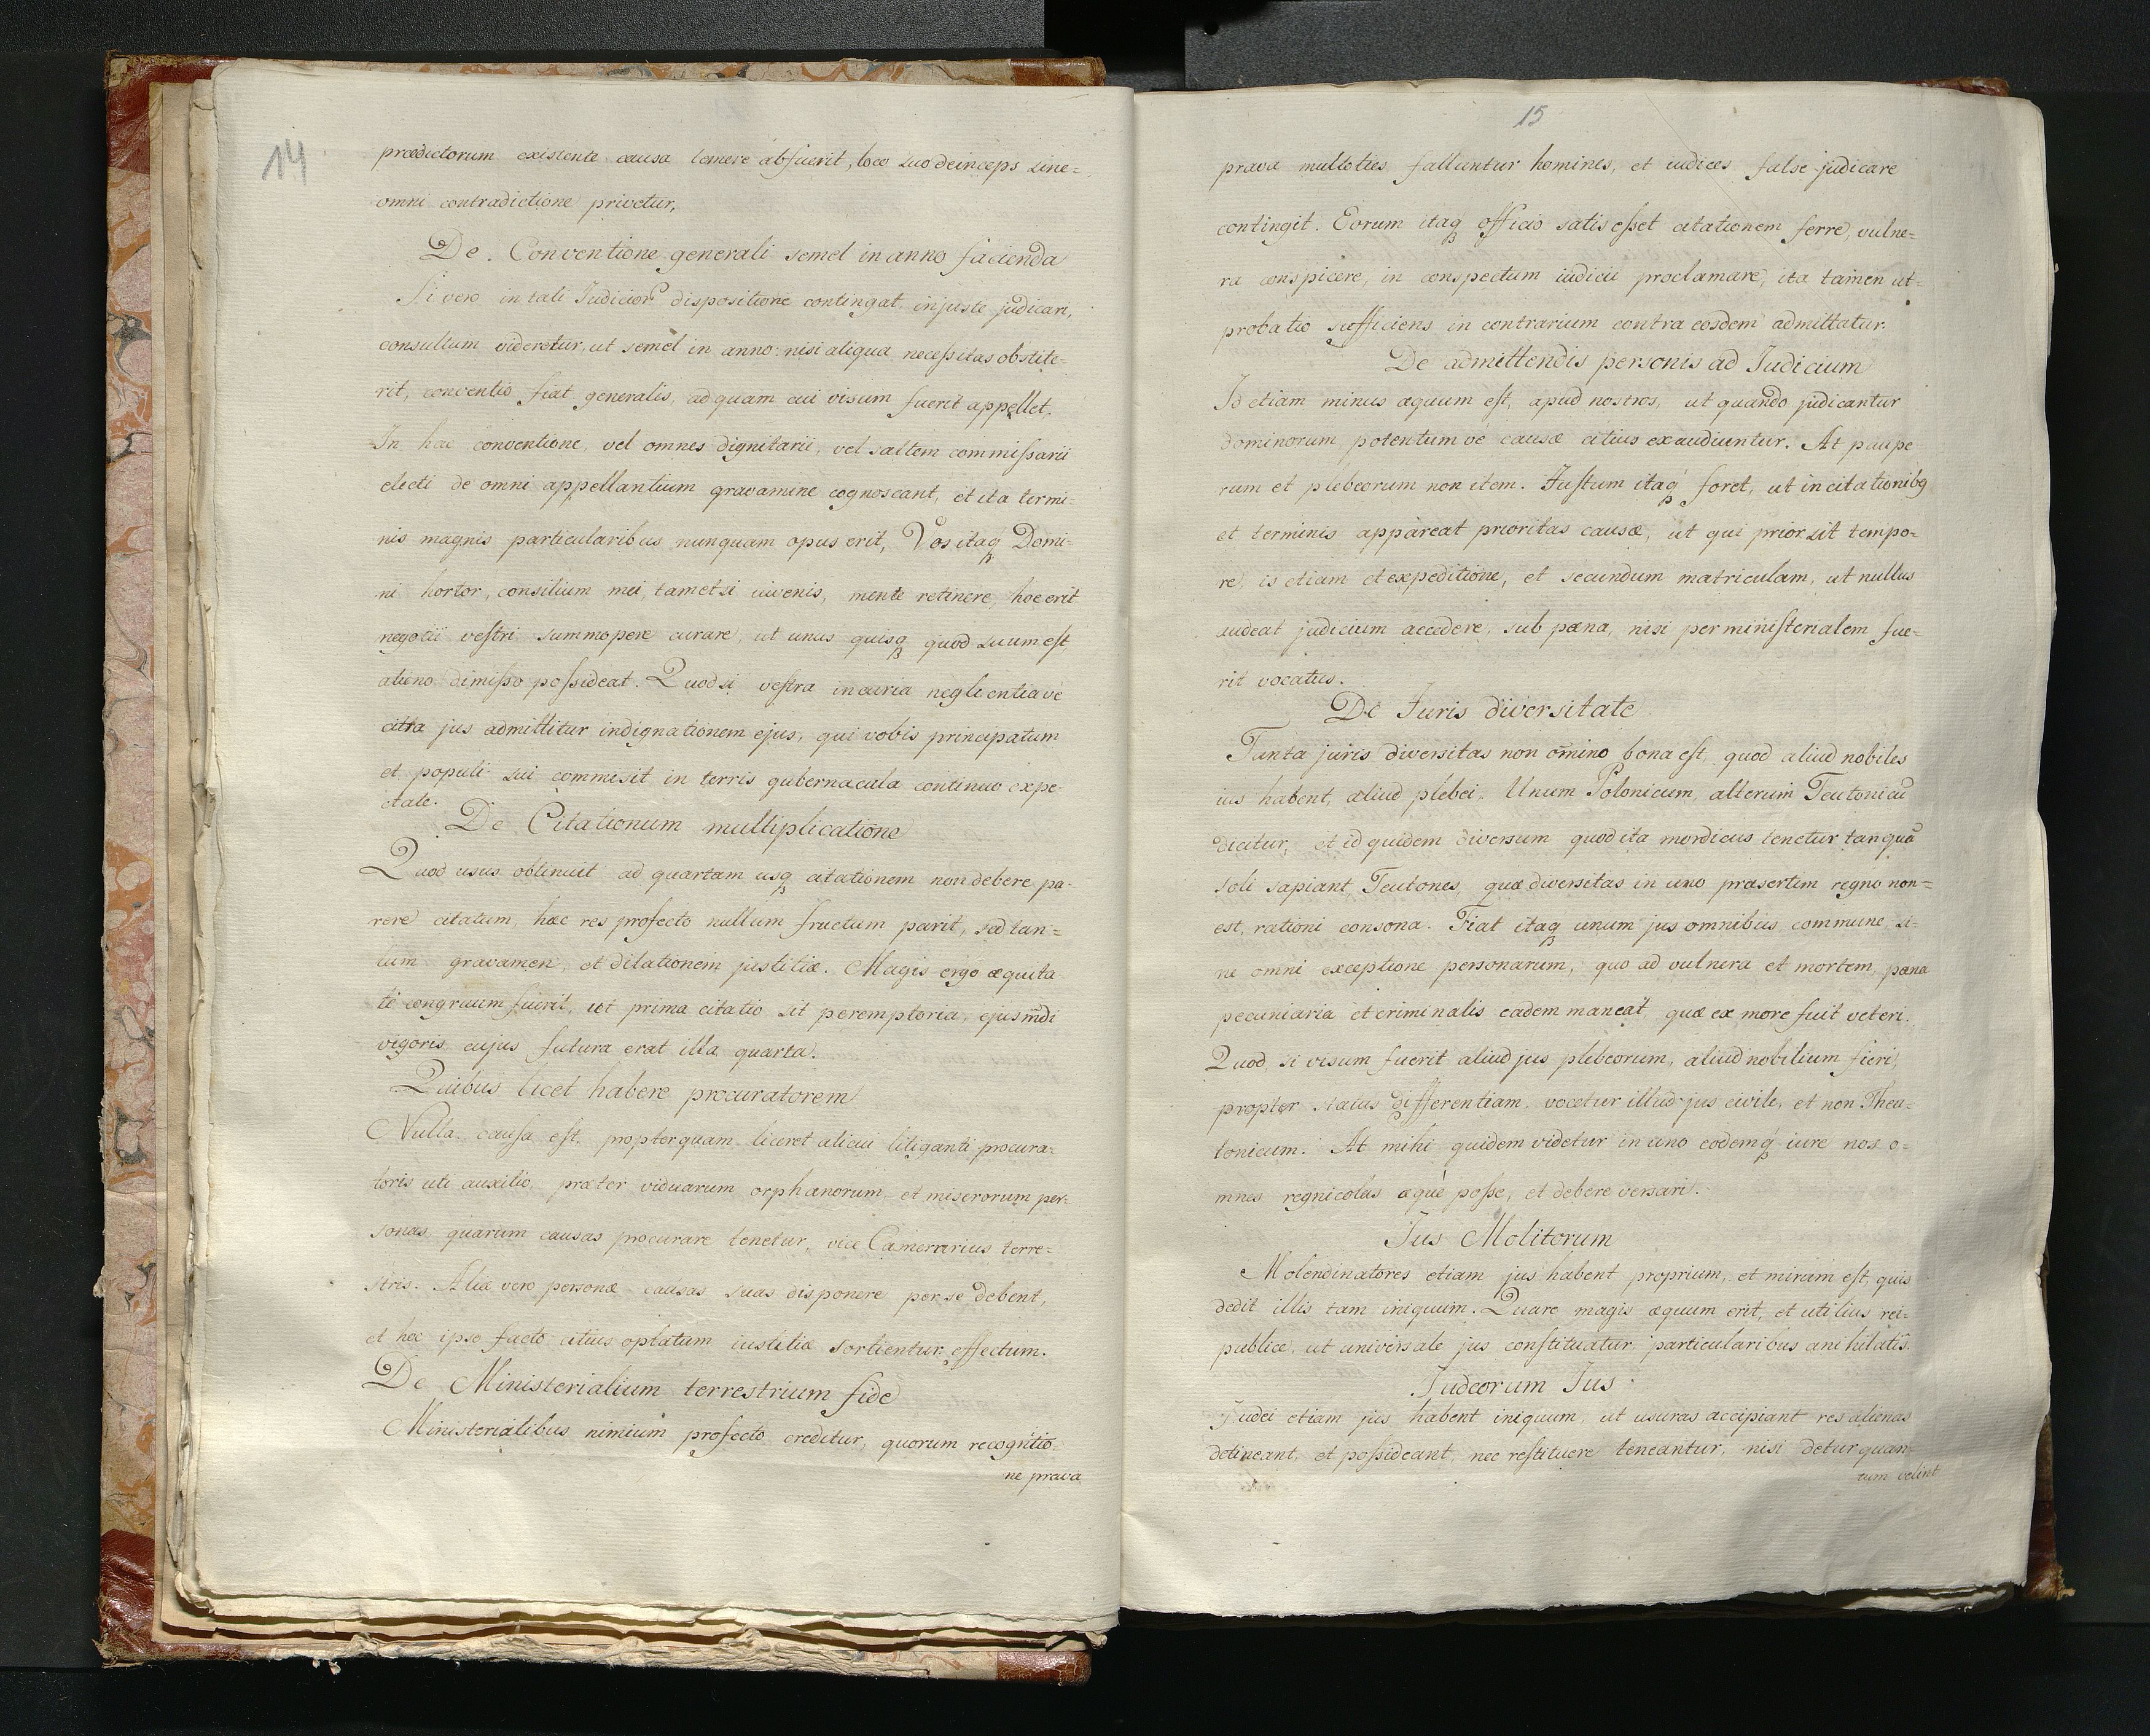 14
prædictorum existente causa temere abfuerit, loco suo deinceps sine=
omni contradictione privetur,
De Conventione generali semel in anno facienda
Si vero in tali Judicior dispositione contingat injuste judicari,
consultum videretur, ut semel in anno nisi aliqua necessitas obstite-
rit, conventio fiat generalis, ad quam cui visum fuerit appellet.
In hac conventione, vel omnes dignitarii, vel saltem commissarii
electi de omni appellantium gravamine cognoscant, et ita termi-
nis magnis particularibus nunquam opus erit, Vos itaq Domi-
ni hortor, consilium mei, tametsi iuvenis, mente retinere, hoc erit
negotii vestri summopere curare, ut unus quisq quod suum est
alieno dimisso possideat. Quod si vestra incuria neglientiave
citra jus admittitur indignationem ejus, qui vobis principatum
et populi sui commisit in terris gubernacula continuo expe-
ctate.
De Citationum multiplicatione
Quod usus obtinuit ad quartam usq citationem non debere pa-
rere citatum, hac res profecto nullum fructum parit, sed tan=
tum gravamen, et dilationem justitiæ. Magis ergo æquita
ti congruum fuerit, ut prima citatio sit peremptoria, ejusmdi
vigoris cujus futura erat illa quarta.
Quibus licet habere procuratorem
Nulla causa est, propterquam liceret alicui litiganti procura-
toris uti auxilio, præter viduarum orphanorum, et miserorum per-
sonas quarum causas procurare tenetur, vice Camerarius terre=
stris. Aliæ vero personæ causas suas disponere per se debent,
et hec ipso facto citius optatum iustitiæ sortientur effectum.
De Ministerialium terrestrium fide
Ministerialibus nimium profecto creditur, quorum recogntio-
ne prava
15
prava multoties falluntur homines, et iudices false judicare
contingit. Eorum itaq officio satis esset citationem ferre, vulne=
ra conspicere, in conspectum iudicii proclamare, ita tamen ut=
probatio sufficiens in contrarium contra eosdem admittatur.
De admittendis personis ad Judicium
Id etiam minus æquum est, apud nostros, ut quando judicantur
dominorum potentum ve causæ citius exaudiuntur. At paupe
rum et plebeorum non item. Justum itaq foret, ut in citationibg
et terminis appareat prioritas causæ, ut qui prior sit tempo=
re, is etiam et expeditione, et secundum matriculam, ut nullus
audeat judicium accedere, sub pæna, nisi per ministerialem fue-
rit vocatus.
De Juris diversitate
Tanta juris diversitas non omino bona est, quod aliud nobiles
ius habent, aliud plebei. Unum Polonicum, alterum Teutonicū
dicitur, et id quidem diversum quod ita mordicus tenetur tanquā
soli sapiant Teutones, quæ diversitas in uno præsertim regno non=
est, rationi consona. Fiat itaq unum jus omnibus commune si-
ne omni exceptione personarum, quo ad vulnera et mortem, pæna
pecuniaria et criminalis eadem maneat, quæ ex more fuit veteri.
Quod si visum fuerit aliud jus plebeorum, aliud nobilium fieri,
propter status differentiam, vocetur illud jus civile, et non Theu-
tonicum. At mihi quidem videtur in uno eodemq iure nos o-
mnes regnicolas æque posse, et debere versari.
Jus Molitorum
Molendinatores etiam jus habent proprium, et mirum est, quis
dedit illis tam iniquum. Quare magis æquum erit, et utilius rei-
publice, ut universale jus constituatur particularibus anihilatis.
Judeorum Jus
Judei etiam jus habent iniquum, ut usuras accipiant res alienas
detineant, et possideant, nec restituere teneantur, nisi detur quan
tum velint